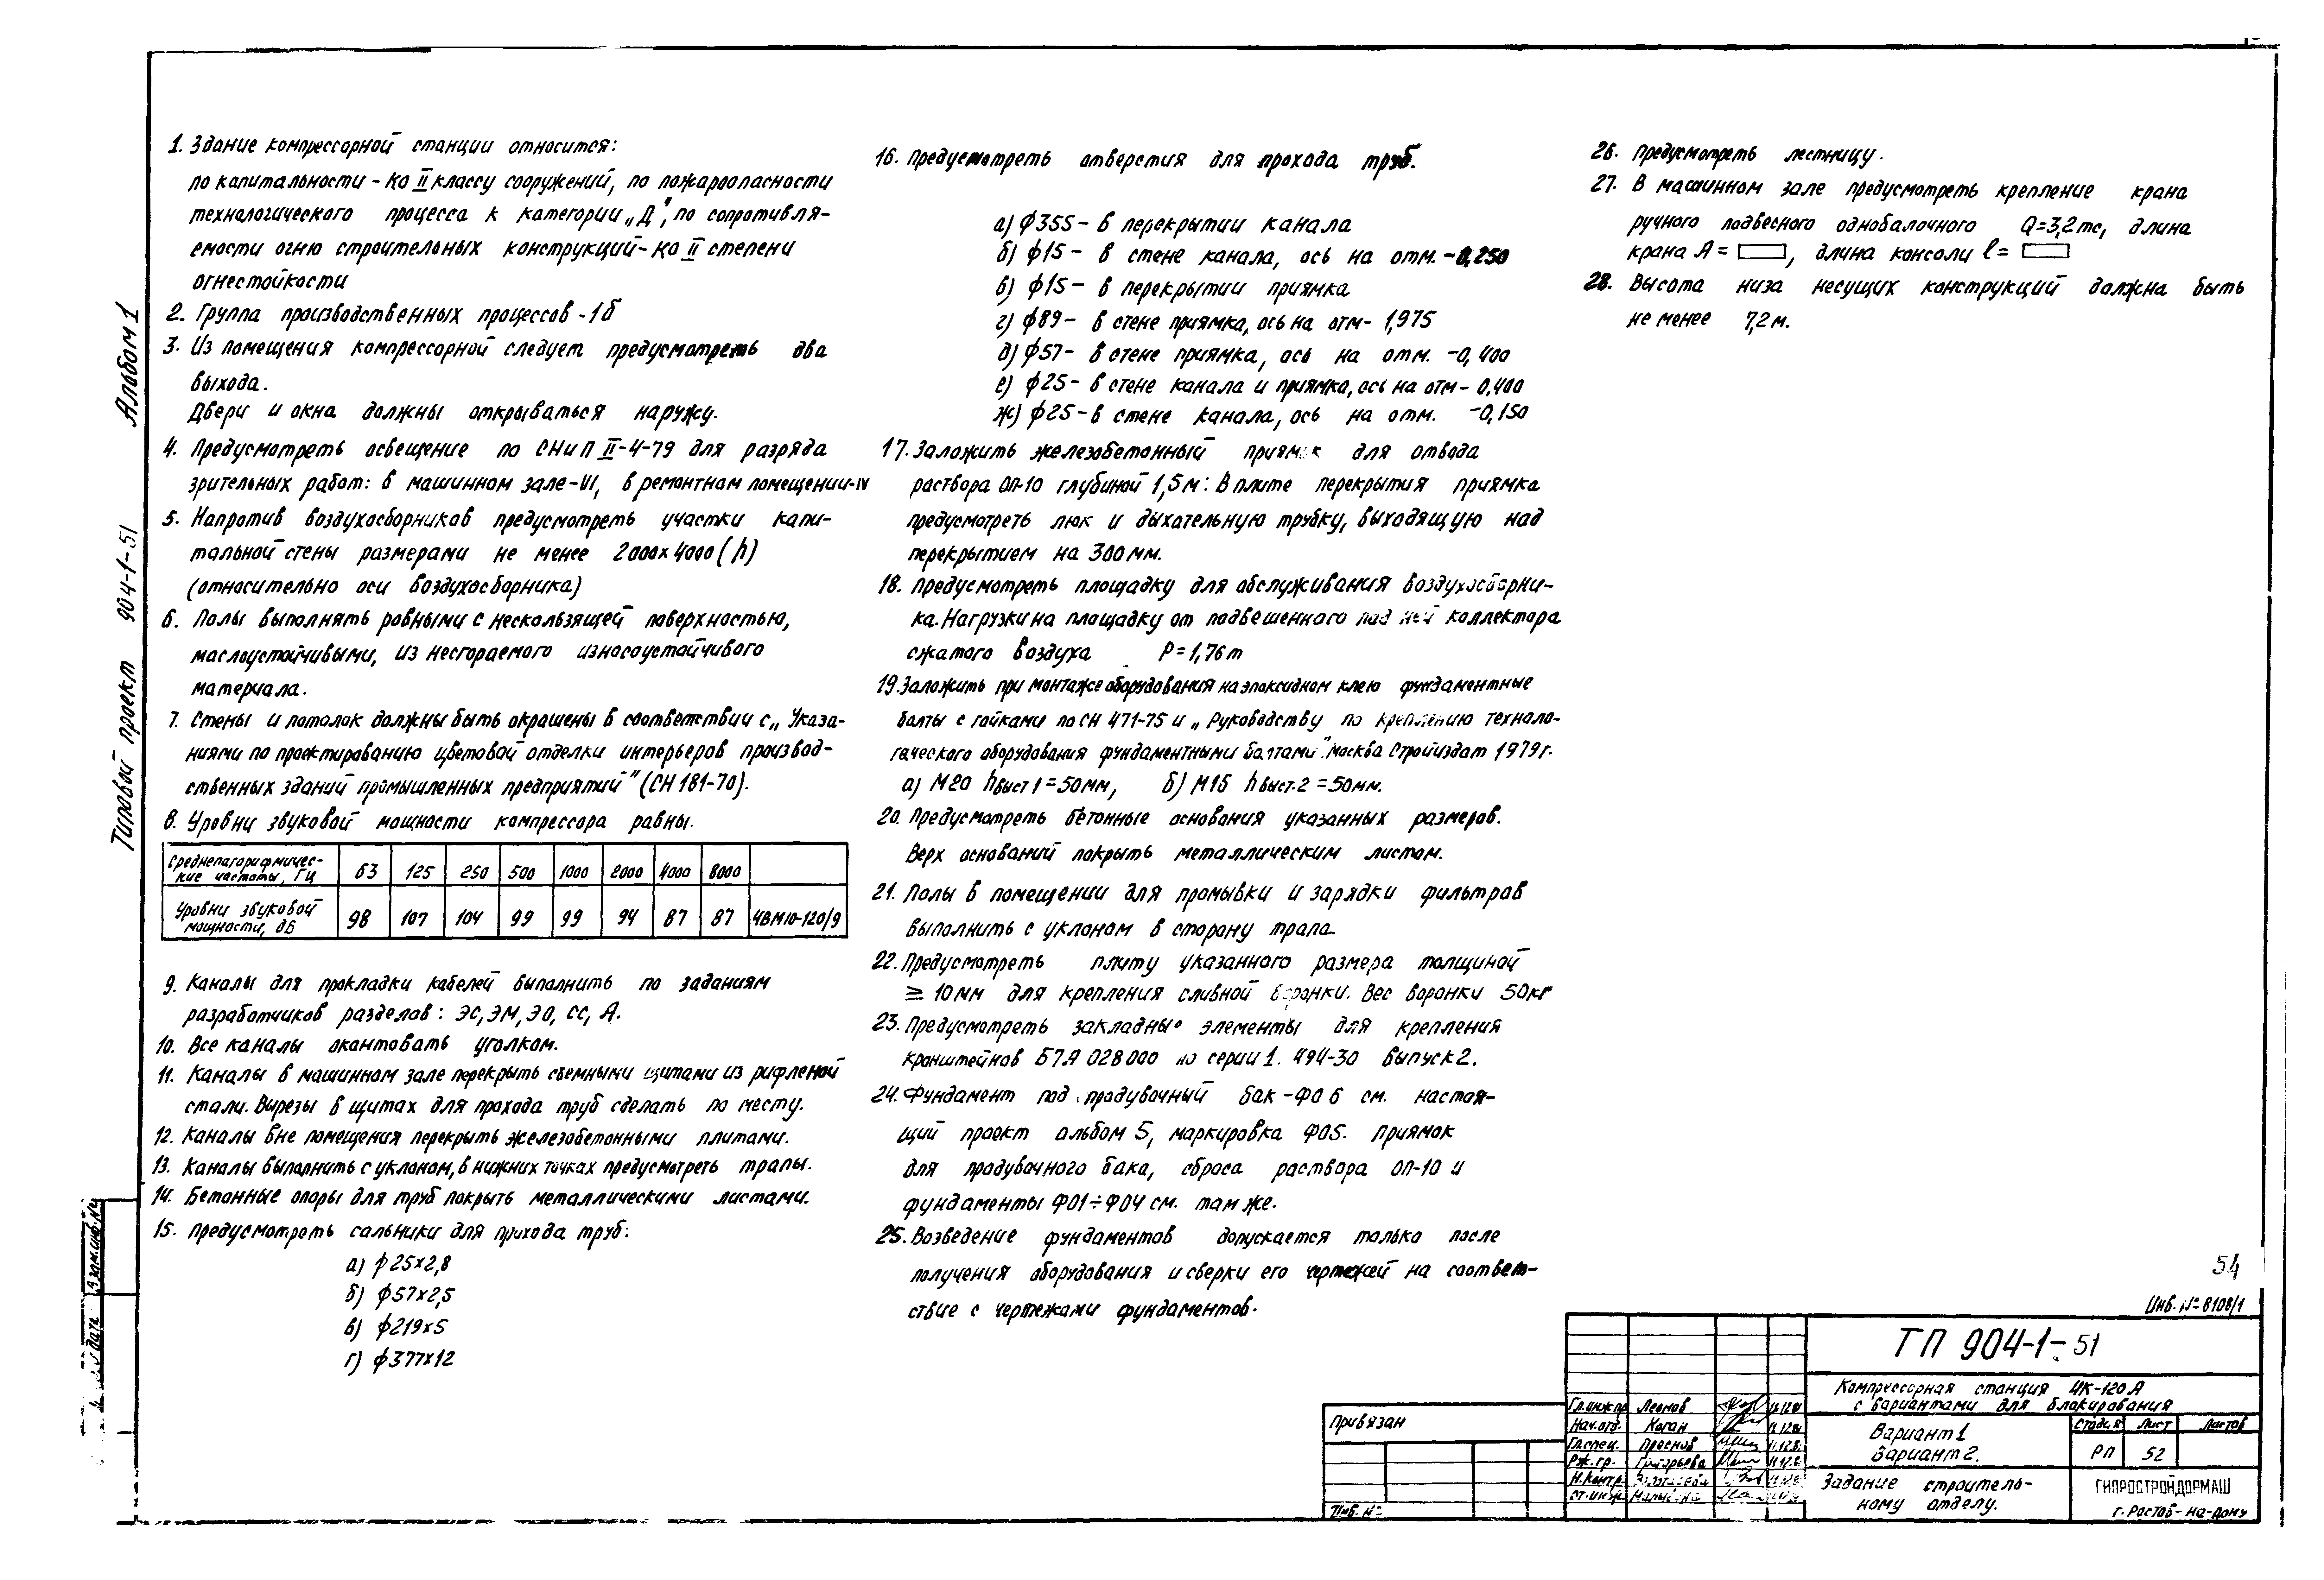 1. Здание компрессорной станции относится:
по капитальности - ко II классу сооружений, по пожароопасности
технологического процесса к категории „Д", по сопротивля-
емости огню строительных конструкций - ко II степени
огнестойкости
2. Группа производственных процессов - 1б
3. Из помещения компрессорной следует предусмотреть два
выхода.
Двери и окна должны открываться наружу.
4. Предусмотреть освещение по СНиП II-4-79 для разряда
зрительных работ: в машинном зале-VI, в ремонтном помещении-IV
5. Напротив воздухосборников предусмотреть участки капи-
тальной стены размерами не менее 2000х4000(h)
(относительно оси воздухосборника)
6. Полы выполнять ровными с нескользящей поверхностью,
маслоустойчивыми, из несгораемого износоустойчивого
материала.
7. Стены и потолок должны быть окрашены в соответствии с „Указа-
ниями по проектированию цветовой отделки интерьеров производ-
ственных зданий промышленных предприятий" (СН 181-70).
8. Уровни звуковой мощности компрессора равны.
Среднелогорифмичес-
кие частоты, Гц 63 125 250 500 1000 2000 4000 8000
Уровни звуковой
мощности, дБ 98 107 104 99 99 94 87 87 4ВМ10-120/9
9. Каналы для прокладки кабелей выполнить по заданиям
разработчиков разделов: ЭС, ЭМ, ЭО, СС, А.
10. Все каналы окантовать уголком.
11. Каналы в машинном зале перекрыть съемными щитами из рифленой
стали. Вырезы в щитах для прохода труб сделать по месту.
12. Каналы вне помещения перекрыть железобетонными плитами.
13. Каналы выполнить с уклоном, в нижних точках предусмотреть трапы.
14. Бетонные опоры для труб покрыть металлическими листами.
15. Предусмотреть сальники для прохода труб:
а) ф25х2,8
б) ф57х2,5
в) ф219х5
г) ф377х12
16. Предусмотреть отверстия для прохода труб.
а) ф355- в перекрытии канала
б) ф15- в стене канала, ось на отм. -0,250
в) ф15- в перекрытии приямка
г) ф89- в стене приямка, ось на отм- 1,975
д) ф57- в стене приямка, ось на отм. -0,400
е) ф25- в стене канала и приямка, ось на отм- 0,400
ж) ф25- в стене канала, ось на отм. -0,150
17. Заложить железобетонный приямок для отвода
раствора ОП-10 глубиной 1,5м. В плите перекрытия приямка
предусмотреть люк и дыхательную трубку, выходящую над
перекрытием на 300мм.
18. Предусмотреть площадку для обслуживания воздухосборни-
ка. Нагрузки на площадку от подвешенного под ней коллектора
сжатого воздуха Р=1,76т
19. Заложить при монтаже оборудования на эпоксидном клею фундаментные
болты с гайками по СН 471-75 и „Руководству по креплению техноло-
гического оборудования фундаментными болтами". Москва Стройиздат 1979г.
а) М20 hвыст1=50мм, б) М15 hвыст.2=50мм.
20. Предусмотреть бетонные основания указанных размеров.
Верх оснований покрыть металлическим листом.
21. Полы в помещении для промывки и зарядки фильтров
выполнить с уклоном в сторону трапа.
22. Предусмотреть плиту указанного размера толщиной
≥ 10мм для крепления сливной воронки. Вес воронки 50кг
23. Предусмотреть закладные элементы для крепления
кронштейнов Б7.А 028 000 по серии 1. 494-30 выпуск 2.
24. Фундамент под продувочный бак - ФО 6 см. настоя-
щий проект альбом 5, маркировка ФО5. Приямок
для продувочного бака, сброса раствора ОП-10 и
фундаменты ФО1÷ФО4 см. там же.
25. Возведение фундаментов допускается только после
получения оборудования и сверки его чертежей на соответ-
ствие с чертежами фундаментов.
26. Предусмотреть лестницу.
27. В машинном зале предусмотреть крепление крана
ручного подвесного однобалочного Q=3,2тс, длина
крана А= , длина консоли l=
28. Высота низа несущих конструкций должна быть
не менее 7,2м.
Типовой проект 904-1-51 Альбом 1
Взам.инв.№
54
Инв. № 8108/1
ТП 904-1-51
Компрессорная станция 4К-120А
с вариантами для блокирования
Вариант 1
Вариант 2.
Стадия Лист Листов
РП 52
Задание строитель-
ному отделу.
ГИПРОСТРОЙДОРМАШ
г. Ростов-на-Дону
Привязан
Инв. №
Гл.инж.пр Леонов
Нач.отд. Коган
Гл.спец. Проснов
Рук.гр. Григорьева
Н.контр.
Ст.инж.